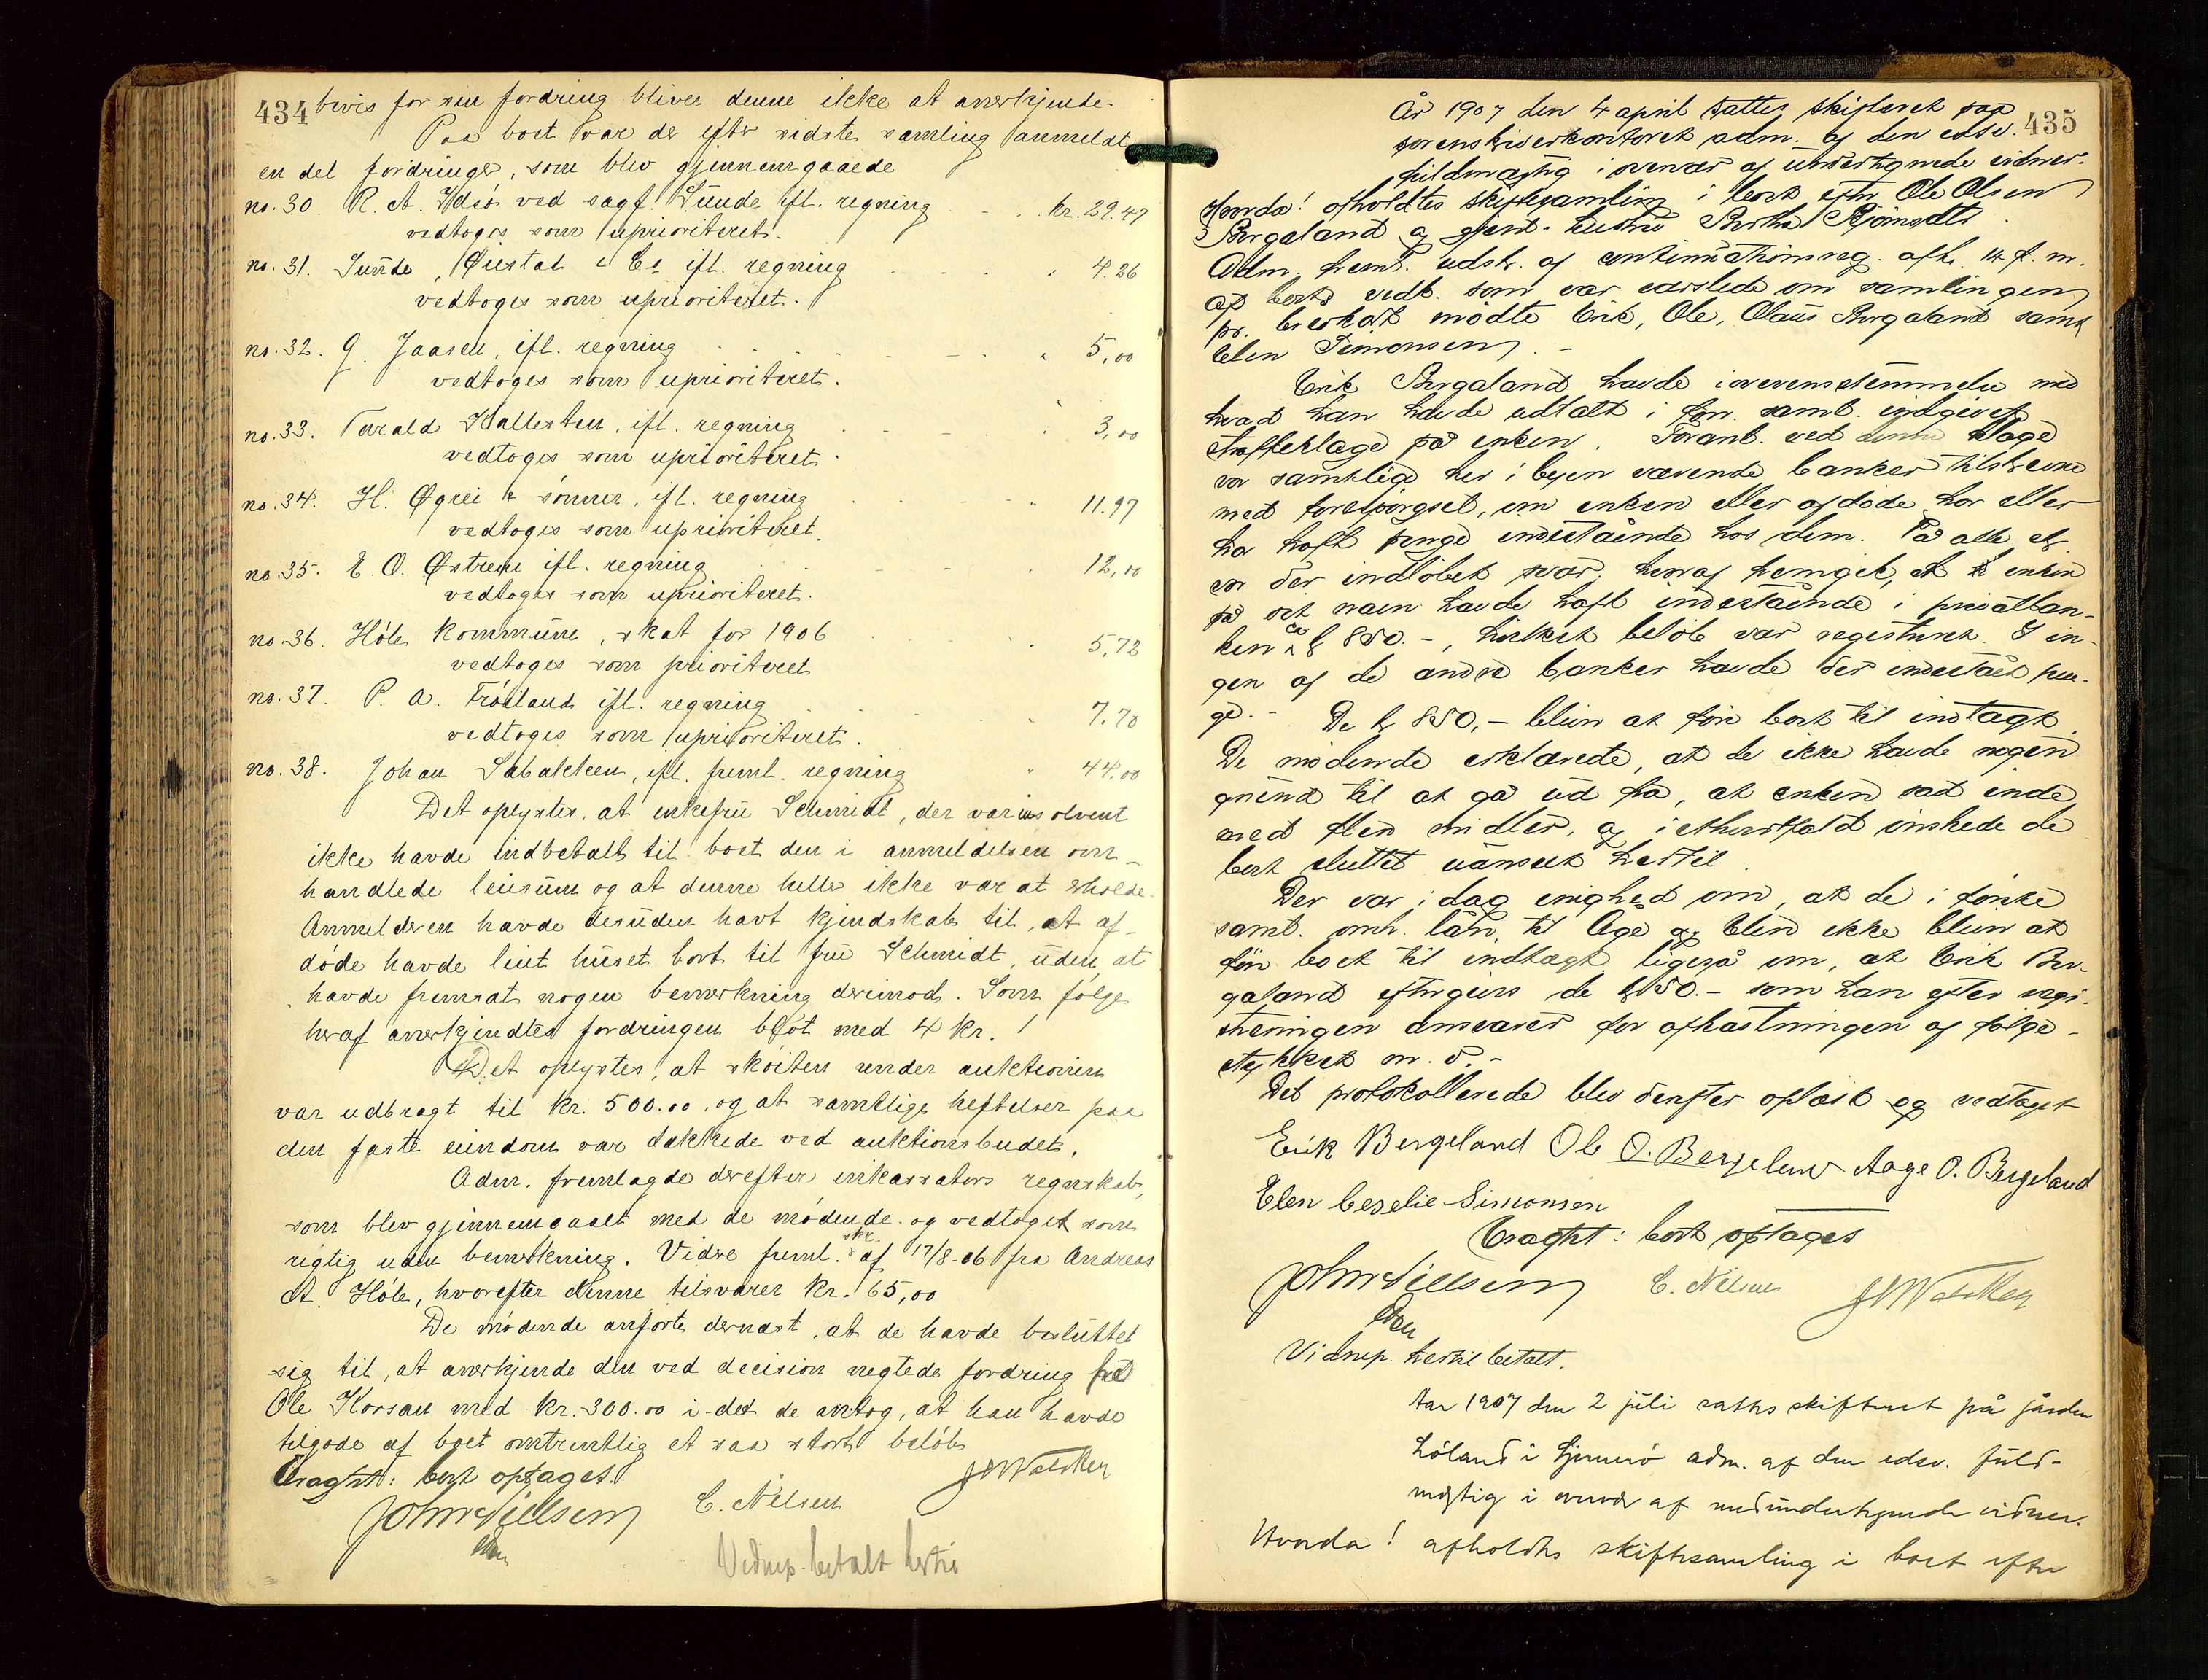 434 bevis for sin fordring bliver denne ikke at anerkjende.
Paa boet var der efter sidste samling anmeldt
en del fordringer, som blev gjennemgaaede
no. 30 R. A. Idsø ved sagf. Sunde ifl. regning kr. 29.47
vedtoges som uprioriteret.
no. 31. Sunde, Øiestad & Co ifl. regning " 4.26
vedtoges som uprioriteret.
no. 32. G. Jaasen, ifl. regning " 5,00
vedtoges som uprioriteret.
no. 33. Tarald Hallesten, ifl. regning " 3,00
vedtoges som uprioriteret.
no. 34. H. Øgrei & sønner, ifl. regning " 11.97
vedtoges som uprioriteret.
no. 35. E. O. Østrem ifl. regning " 12,00
vedtoges som uprioriteret.
no. 36. Høle kommune, skat for 1906 " 5,72
vedtoges som prioriteret
no. 37. P. A. Frøiland ifl. regning " 7.70
vedtoges som uprioriteret.
no. 38. Johan Sabakken, ifl. freml. regning " 44.00
Det oplystes, at enkefru Schmidt, der var insolvent
ikke havde indbetalt til boet den i anmeldelsen om-
handlede leiesum og at denne heller ikke var at erholde.
Anmelderen havde desuden havt kjendskab til, at af-
døde havde leiet huset bort til fru Schmidt, uden at
havde fremsat nogen bemerkning derimod. Som følge
heraf anerkjendtes fordringen blot med 4 kr.
Det oplystes, at skøiten under auktionen
var udbragt til kr. 500.00, og at samtlige heftelser paa
den faste eiendom var dækkede ved auktionsbudet.
Adm. fremlagde derefter inkassators regnskab,
som blev gjennemgaaet med de mødende og vedtoget som
rigtig uden bemerkning. Videre freml. skr. af 17/8-06 fra Andreas
A. Høle, hvorefter denne tilsvarer kr. 65,00
De mødende anførte dernæst, at de havde besluttet
sig til, at anerkjende den ved decision negtede fordring fra
Ole Korsau med kr. 300.00 i det de antog, at han havde
tilgode af boet omtrentlig et saa stort beløb
Eragtet: boet optages.
John Nielsen C. Nilsen
Vidnep. betalt hertil
435
År 1907 den 4 april sattes skifteret paa
sorenskriverkontoret adm. af den edsv.
fuldmægtig i overvær af undertegnede vidner.
Hvorda! afholdtes skiftesamling i boet efter Ole Olsen
Bergaland og gjenl. hustru Bertha
Adm. freml. udskr. af extraktionsreg. afh. 14 f. m.
Af boets vedk. som var varslede om samlingen
pr. brevkort mødte Erik, Ole, Olaus Bergaland samt
Elen Simonsen.
Erik Bergaland havde i overensstemmelse med
hvad han havde udtalt i forr. saml. indgivet
straffeklage på enken. Foranl. ved denne klage
var samtlige her i byen værende banker tilskrevne
med forespørgsel, om enken eller afdøde har eller
har haft penge indestående hos dem. På alle er
der indløbet svar; heraf fremgik, at enken
på sit navn havde haft indestående i privatban-
ken ca k 850.-, hvilket beløb var registreret. I in-
gen af de andre banker havde der indestået pen-
ge. - De k 850,- bliver at føre boet til indtægt.
De mødende erklærede, at de ikke havde nogen
grund til at gå ud fra, at enken sad inde
med flere midler, og i ethvert fald ønskede de
boet sluttet uanseet hertil.
Der var i dag enighed om, at de i første
saml. omh. lån til Åge og Elen ikke bliver at
føre boet til indtægt ligeså om, at Erik Ber-
galand eftergives de k 150.- som han efter regi-
streringen ansvarer for afkastningen af følge-
stykket m. v. -
Det protokollerede blev derefter oplæst og vedtaget
Erik Bergeland Ole O. Bergeland Aage O. Bergeland
Elen Ceselie Simonsen
Eragtet: boet optages
John Nielsen C. Nilsen
Vidnep. hertil betalt.
Aar 1907 den 2 juli sattes skifteret på gården
Høland i adm. af den edsv. fuld-
mægtig i overvær af medundertegnede vidner.
Hvorda! afholdtes skiftesamling i boet efter